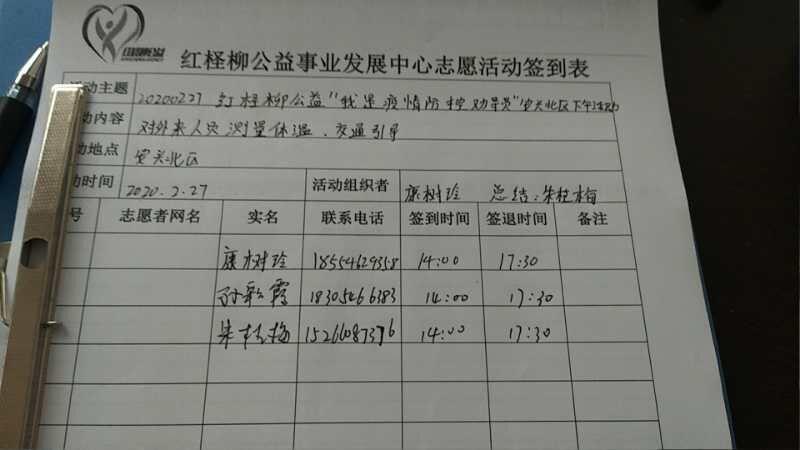 红柽柳公益事业发展中心志愿活动签到表
活动主题 20200227 红柽柳公益"我是疫情防控劝导员"安关北区下午
动内容 对外来人员测量体温、交通引导
动地点 安关北区
动时间 2020.2.27 活动组织者 康树玲 总结:朱桂梅
号 志愿者网名 实名 联系电话 签到时间 签退时间 备注
康树玲 18554629358 14:00 17:30
孙彩霞 18305466383 14:00 17:30
朱桂梅 15266087376 14:00 17:30